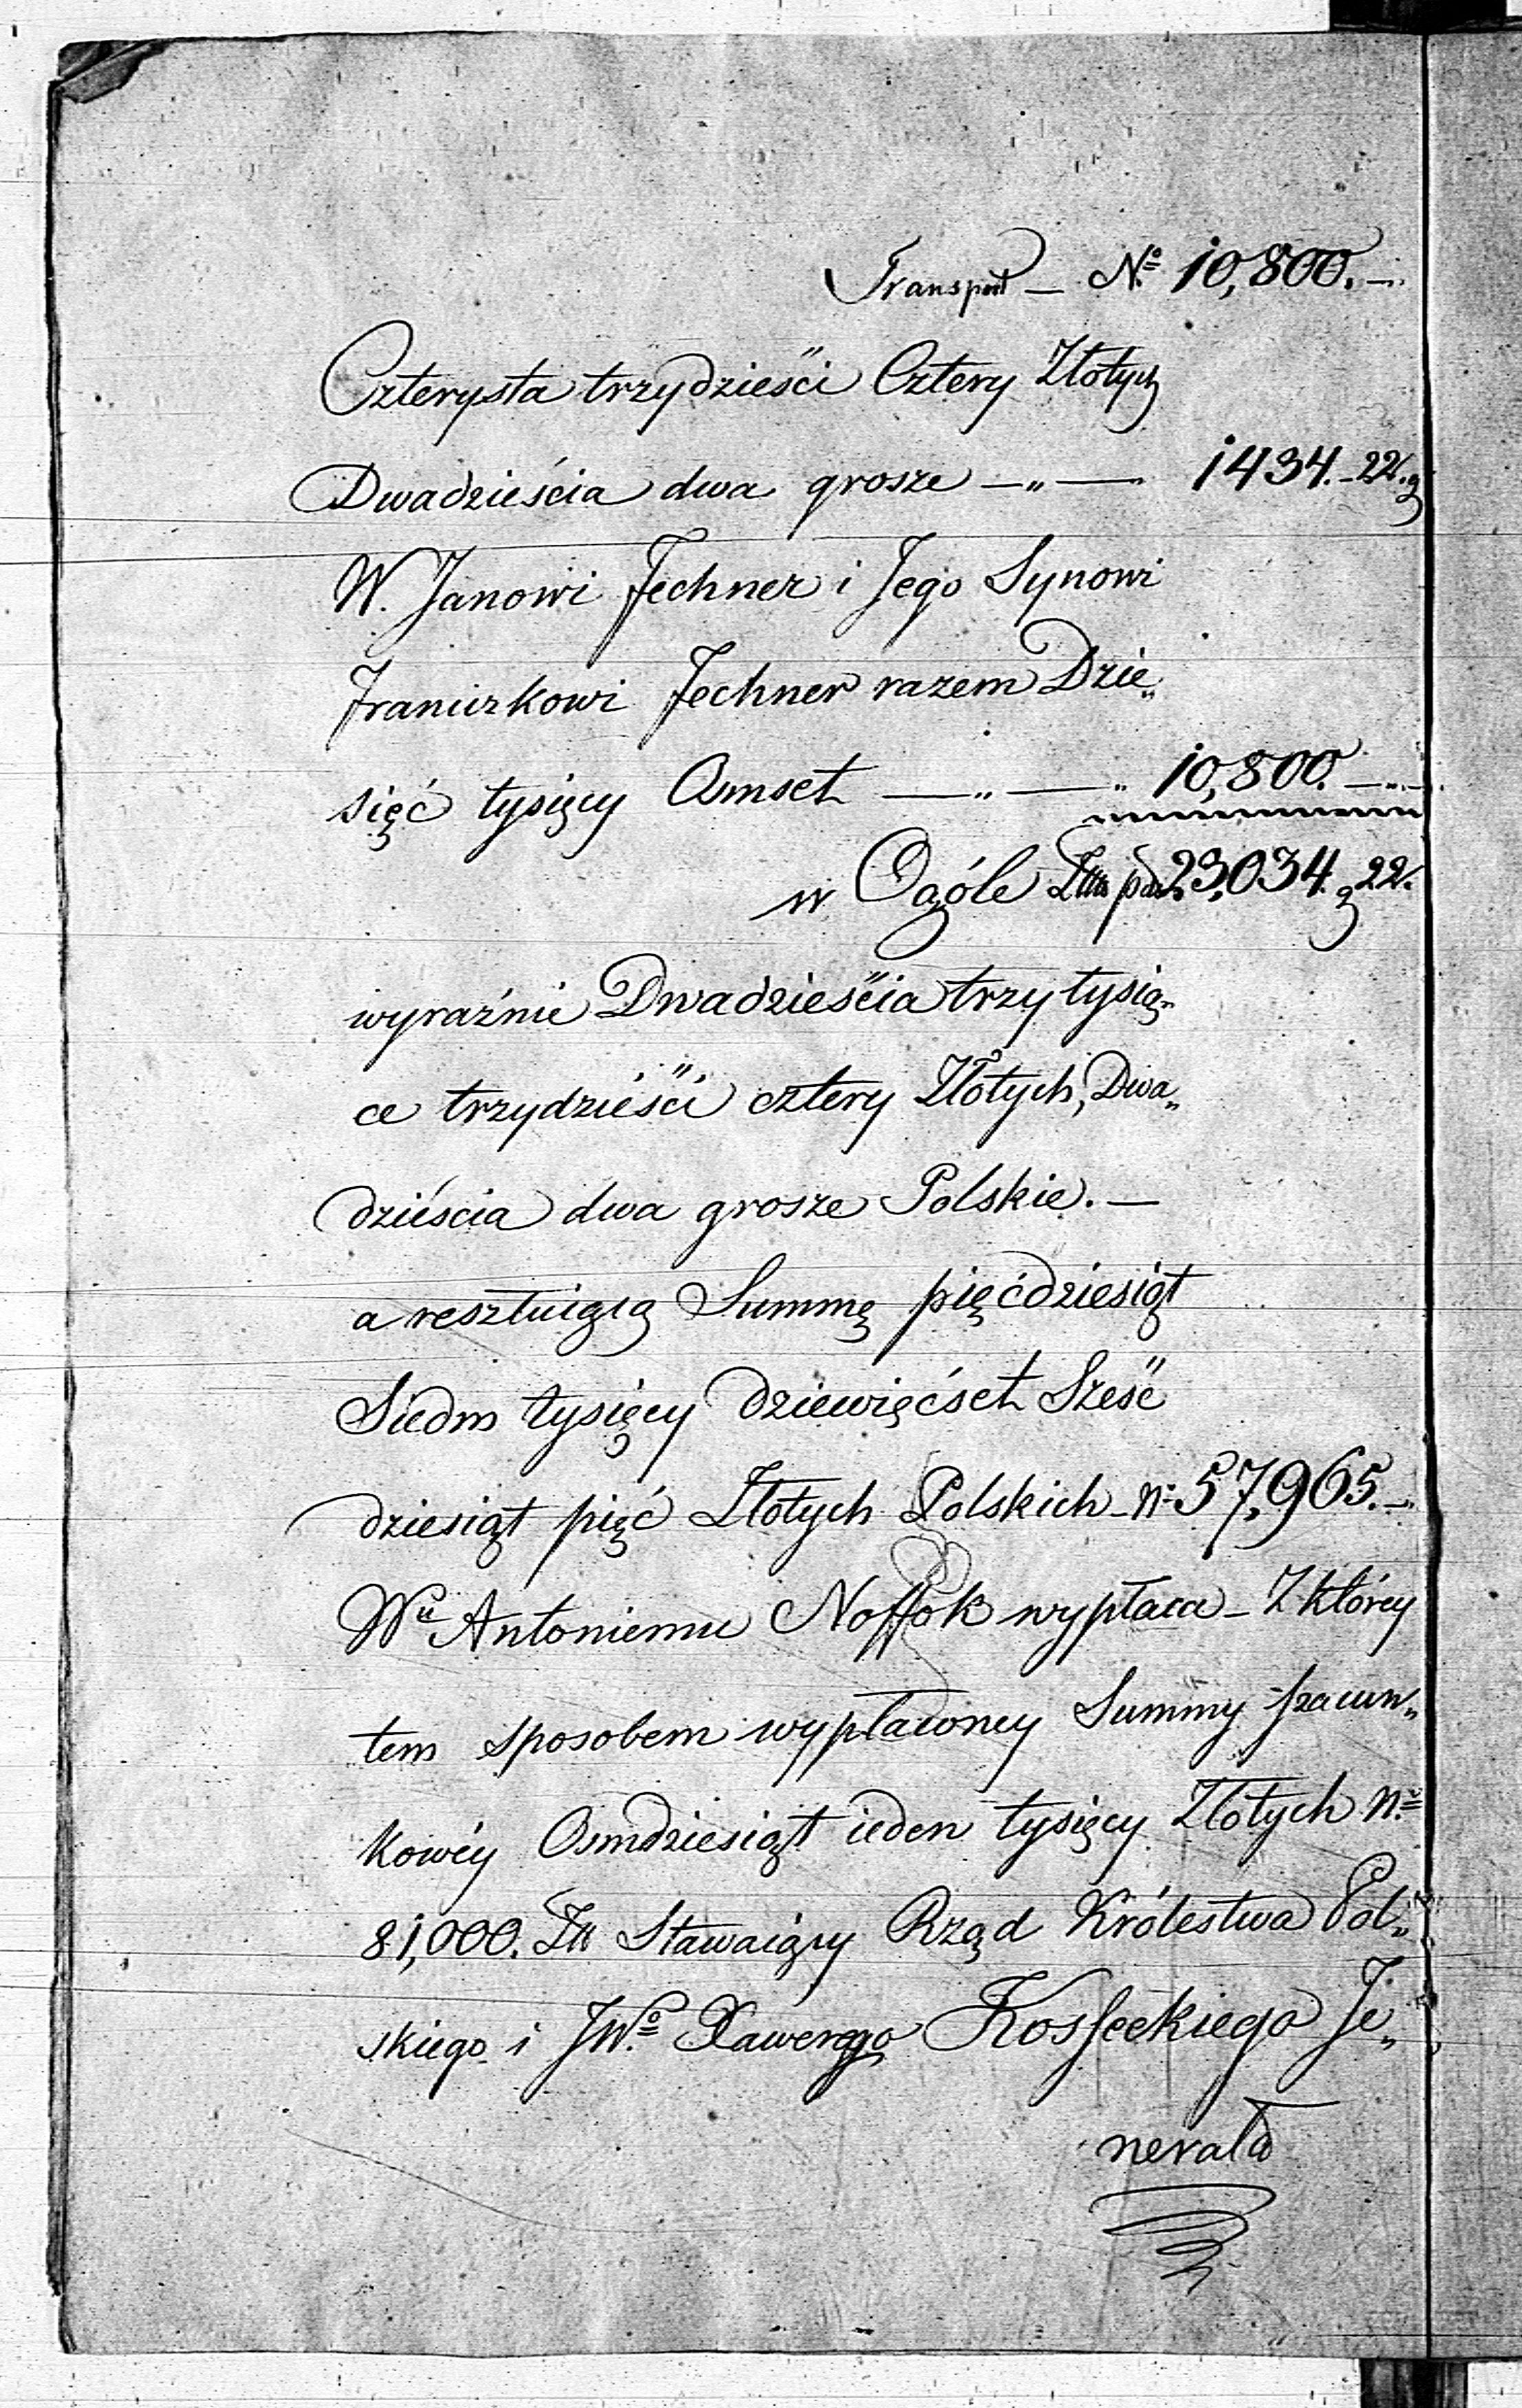 Transport — No 10,800.—
Czterysta trzydzieści Cztery Złotych
Dwadzieścia dwa grosze —„— 1434.-22.g
W. Janowi Fechner i Jego Synowi
Franciszkowi Fechner razem Dzie„
sięć tysięcy Osmset —„—„ 10,800.—„—
w Ogóle Złłł pol. 23,034. g 22.
wyraźnie Dwadzieścia trzy tysią„
ce trzydzieści cztery Złotych, Dwa„
dzieścia dwa grosze Polskie.—
a resztuiącą Summę pięćdziesiąt
Siedm tysięcy dziewięćset Sześć
dziesiąt pięć Złotych Polskich No 57,965.—
Wu Antoniemu Noffok wypłaca — Z którey
tem sposobem wypłaconey Summy szacun„
kowéy Osmdziesiąt ieden tysięcy Złotych No
81,000. Złł Stawaiący Rząd Królestwa Pol„
skiego i JWo Xawerego Kosseckiego Je„
nerała